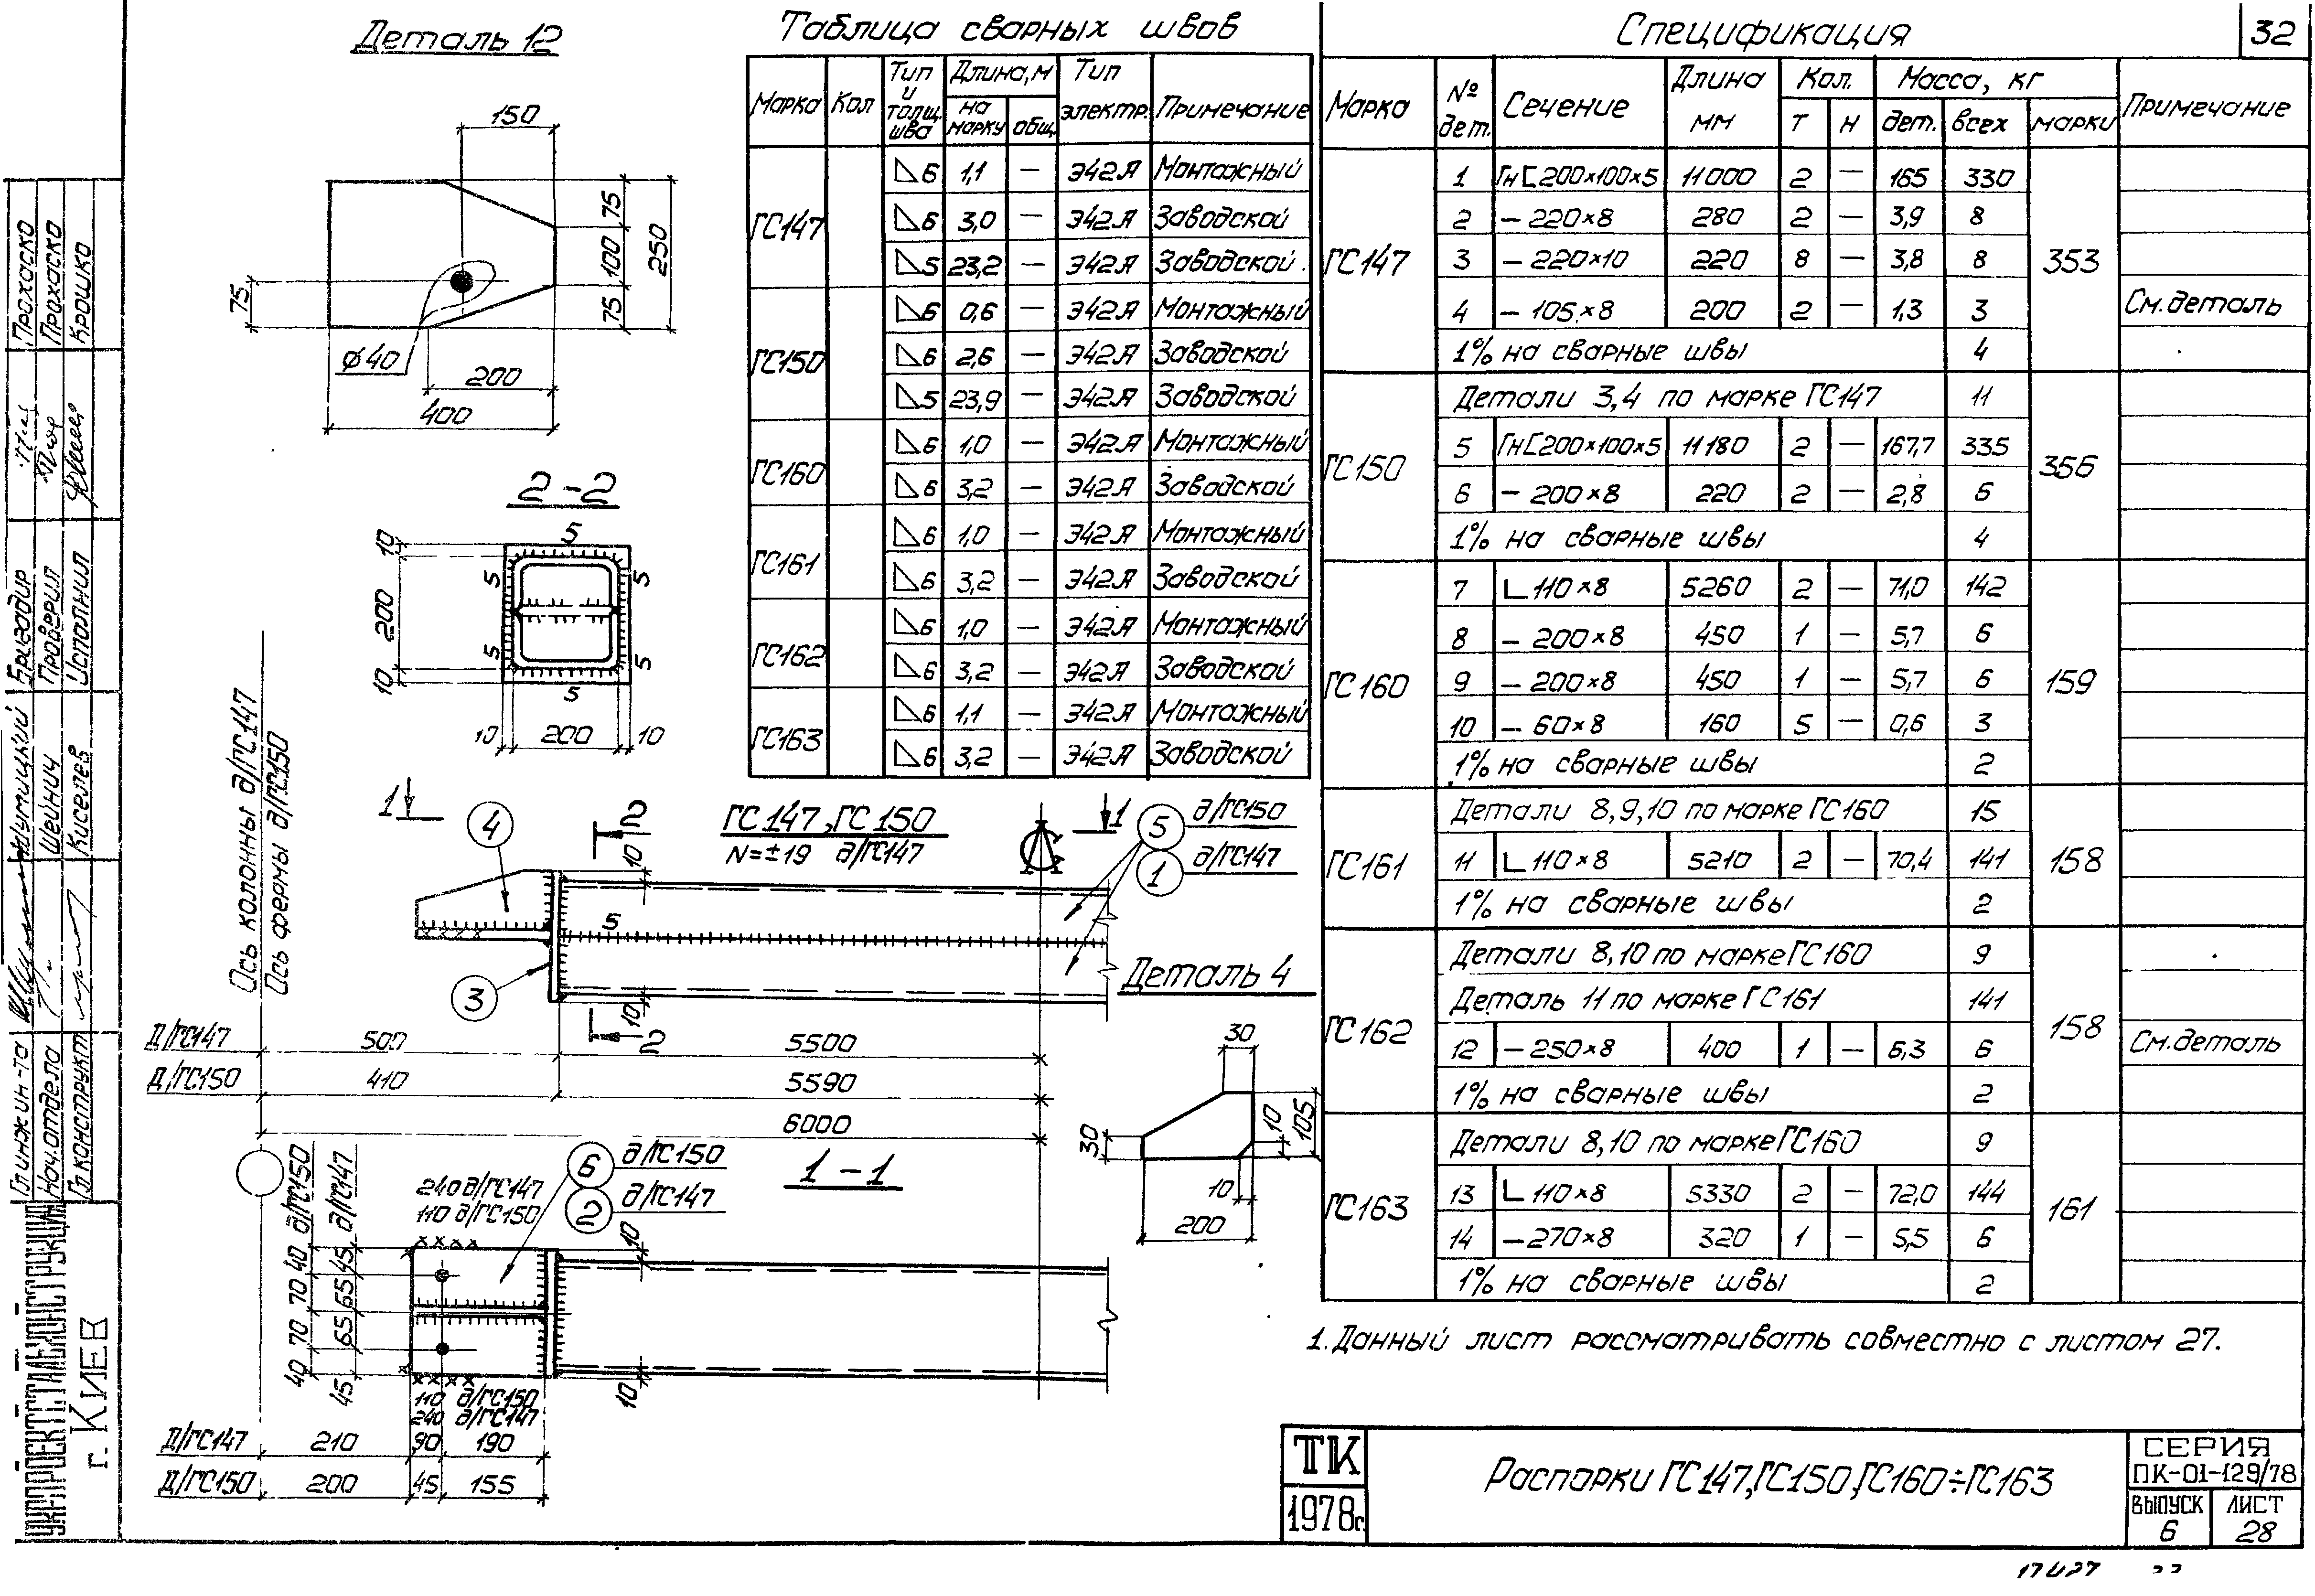 32
Деталь 12
150
75
100
75
250
75
ø40
200
400
2-2
5
10
200
10
5
5
5
5
5
10
200
10
Таблица сварных швов
Марка Кол Тип и толщ. шва Длина, м на марку общ. Тип электр. Примечание
ГС147 6 1,1 — Э42А Монтажный
6 3,0 — Э42А Заводской
5 23,2 — Э42А Заводской
ГС150 6 0,6 — Э42А Монтажный
6 2,6 — Э42А Заводской
5 23,9 — Э42А Заводской
ГС160 6 1,0 — Э42А Монтажный
6 3,2 — Э42А Заводской
ГС161 6 1,0 — Э42А Монтажный
6 3,2 — Э42А Заводской
ГС162 6 1,0 — Э42А Монтажный
6 3,2 — Э42А Заводской
ГС163 6 1,1 — Э42А Монтажный
6 3,2 — Э42А Заводской
Спецификация
Марка № дет. Сечение Длина мм Кол. т н Масса, кг дет. всех марки Примечание
ГС147
1 Гн[200×100×5 11000 2 — 165 330
2 -220×8 280 2 — 3,9 8
3 -220×10 220 8 — 3,8 8
353
4 -105×8 200 2 — 1,3 3 См. деталь
1% на сварные швы 4
ГС150
Детали 3,4 по марке ГС147 11
5 Гн[200×100×5 11180 2 — 167,7 335
356
6 -200×8 220 2 — 2,8 6
1% на сварные швы 4
ГС160
7 L110×8 5260 2 — 71,0 142
8 -200×8 450 1 — 5,7 6
9 -200×8 450 1 — 5,7 6
159
10 -60×8 160 5 — 0,6 3
1% на сварные швы 2
ГС161
Детали 8,9,10 по марке ГС160 15
11 L110×8 5210 2 — 70,4 141
158
1% на сварные швы 2
ГС162
Детали 8,10 по марке ГС160 9
Деталь 11 по марке ГС161 141
158
12 -250×8 400 1 — 6,3 6 См. деталь
1% на сварные швы 2
ГС163
Детали 8,10 по марке ГС160 9
13 L110×8 5330 2 — 72,0 144
161
14 -270×8 320 1 — 5,5 6
1% на сварные швы 2
1. Данный лист рассматривать совместно с листом 27.
Ось колонны д/ГС147
Ось фермы д/ГС150
1
4
2
10
ГС147, ГС150
N=±19 д/ГС147
1
5 д/ГС150
1 д/ГС147
5
3
10
2
Д/ГС147 500 5500
Д/ГС150 410 5590
6000
Деталь 4
30
30
10
105
10
200
1-1
6 д/ГС150
2 д/ГС147
240 д/ГС147
110 д/ГС150
д/ГС150
д/ГС147
40 70 70 40
45 65 65 45
10
10
110 д/ГС150
240 д/ГС147
Д/ГС147 210 90 190
Д/ГС150 200 45 155
ТК
1978г.
Распорки ГС147, ГС150, ГС160÷ГС163
СЕРИЯ
ПК-01-129/78
ВЫПУСК
6
ЛИСТ
28
17427
Гл.инжин-та Шутицкий Бригадир Прохаско
Нач.отдела Шейнич Проверил Прохаско
Гл.конструкт Киселев Исполнил Крошко
УКРПРОЕКТСТАЛЬКОНСТРУКЦИЯ
г. КИЕВ